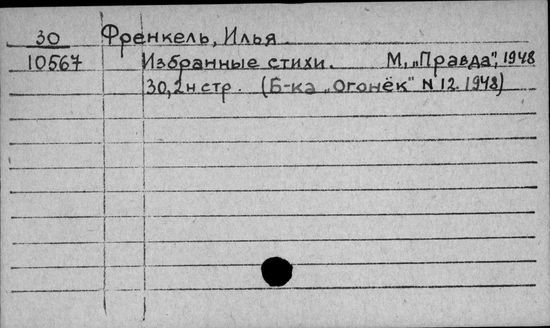 30 Френкель, Илья.
10567 Избранные стихи. М, „Правда", 1948
30, 2н стр. (Б-ка „Огонёк" N 12. 1948)